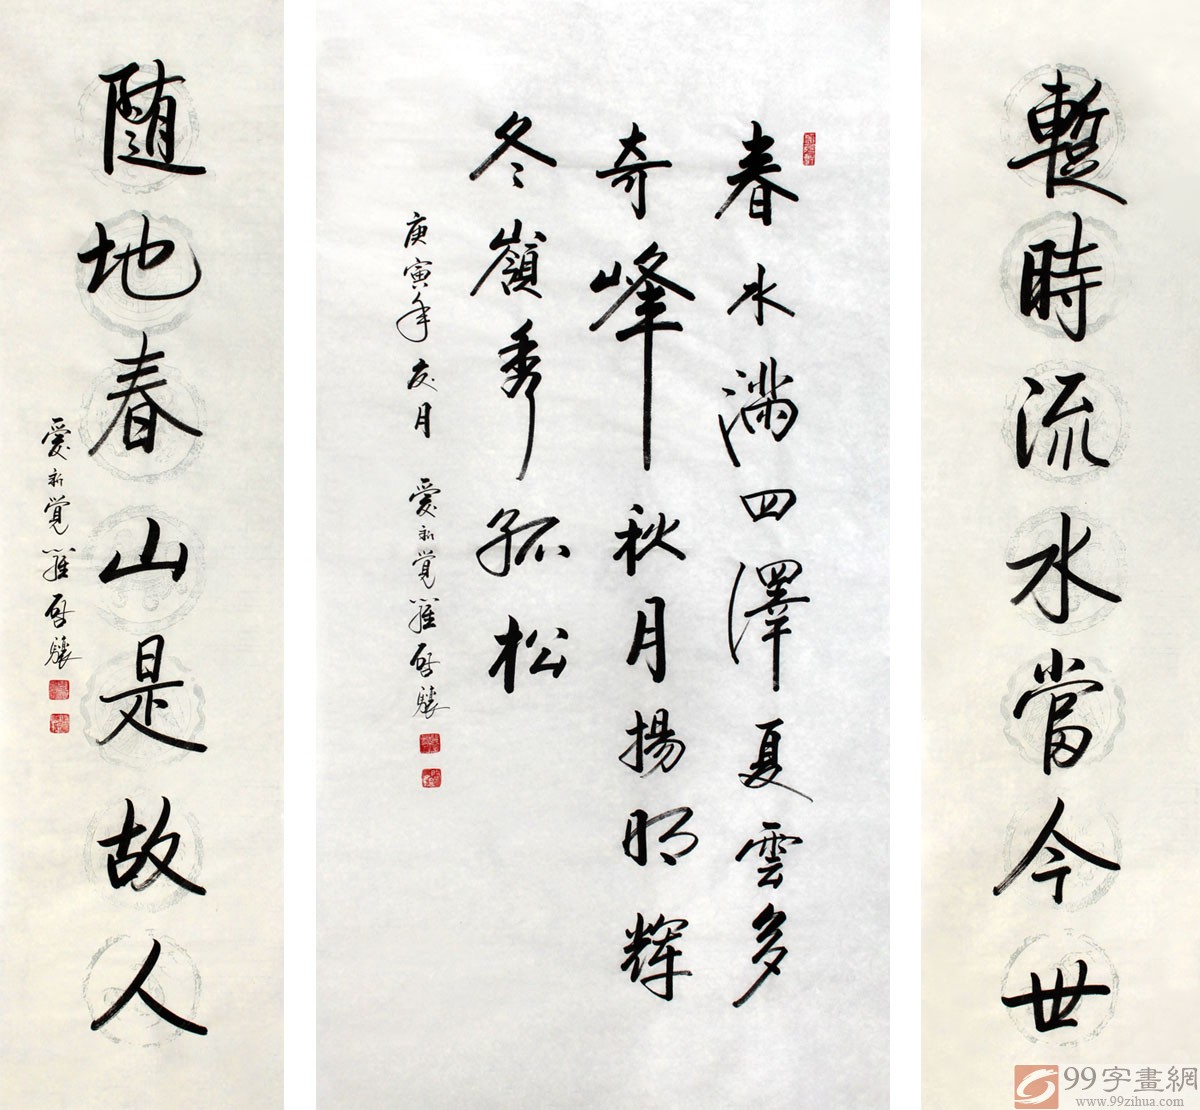 暫時流水當今世
春水滿四澤夏雲多
奇峰秋月揚明輝
冬嶺秀孤松
庚寅年 友月 愛新覺羅啓驤
随地春山是故人
愛新覺羅啓驤
99字畫網
www.99zihua.com